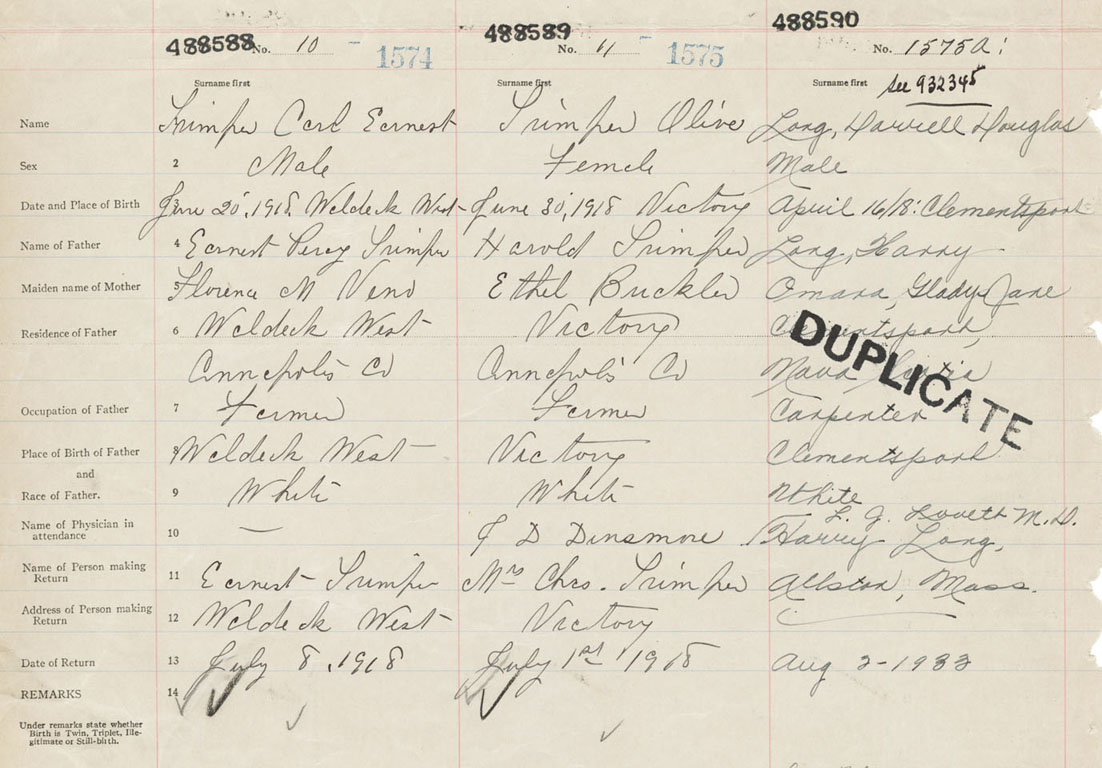 488588 488589 488590
No. 10 - 1574 No. 11 - 1575 No. 1575a:
Surname first Surname first Surname first See 932345
Name Trimper Carl Earnest Trimper Olive Long, Darrell Douglas
Sex 2 Male Female Male
Date and Place of Birth 3 June 20, 1918. Waldeck West June 30, 1918 Victory April 16/18: Clementsport
Name of Father 4 Earnest Percy Trimper Harold Trimper Long, Harry
Maiden name of Mother 5 Florence M Veno Ethel Buckler Omara, Gladys Jane
Residence of Father 6 Waldeck West Victory Clementsport,
Annapolis Co Annapolis Co Nova Scotia
DUPLICATE
Occupation of Father 7 Farmer Farmer Carpenter
Place of Birth of Father 8 Waldeck West Victory Clementsport
and
Race of Father. 9 White White White
Name of Physician in attendance 10 — J D Dinsmore L. J. Lovett M.D.
Harry Long,
Name of Person making Return 11 Earnest Trimper Mrs Chas. Trimper Allston, Mass.
Address of Person making Return 12 Waldeck West Victory
Date of Return 13 July 8, 1918 July 1st 1918 Aug 2-1933
REMARKS 14
Under remarks state whether
Birth is Twin, Triplet, Ille-
gitimate or Still-birth.